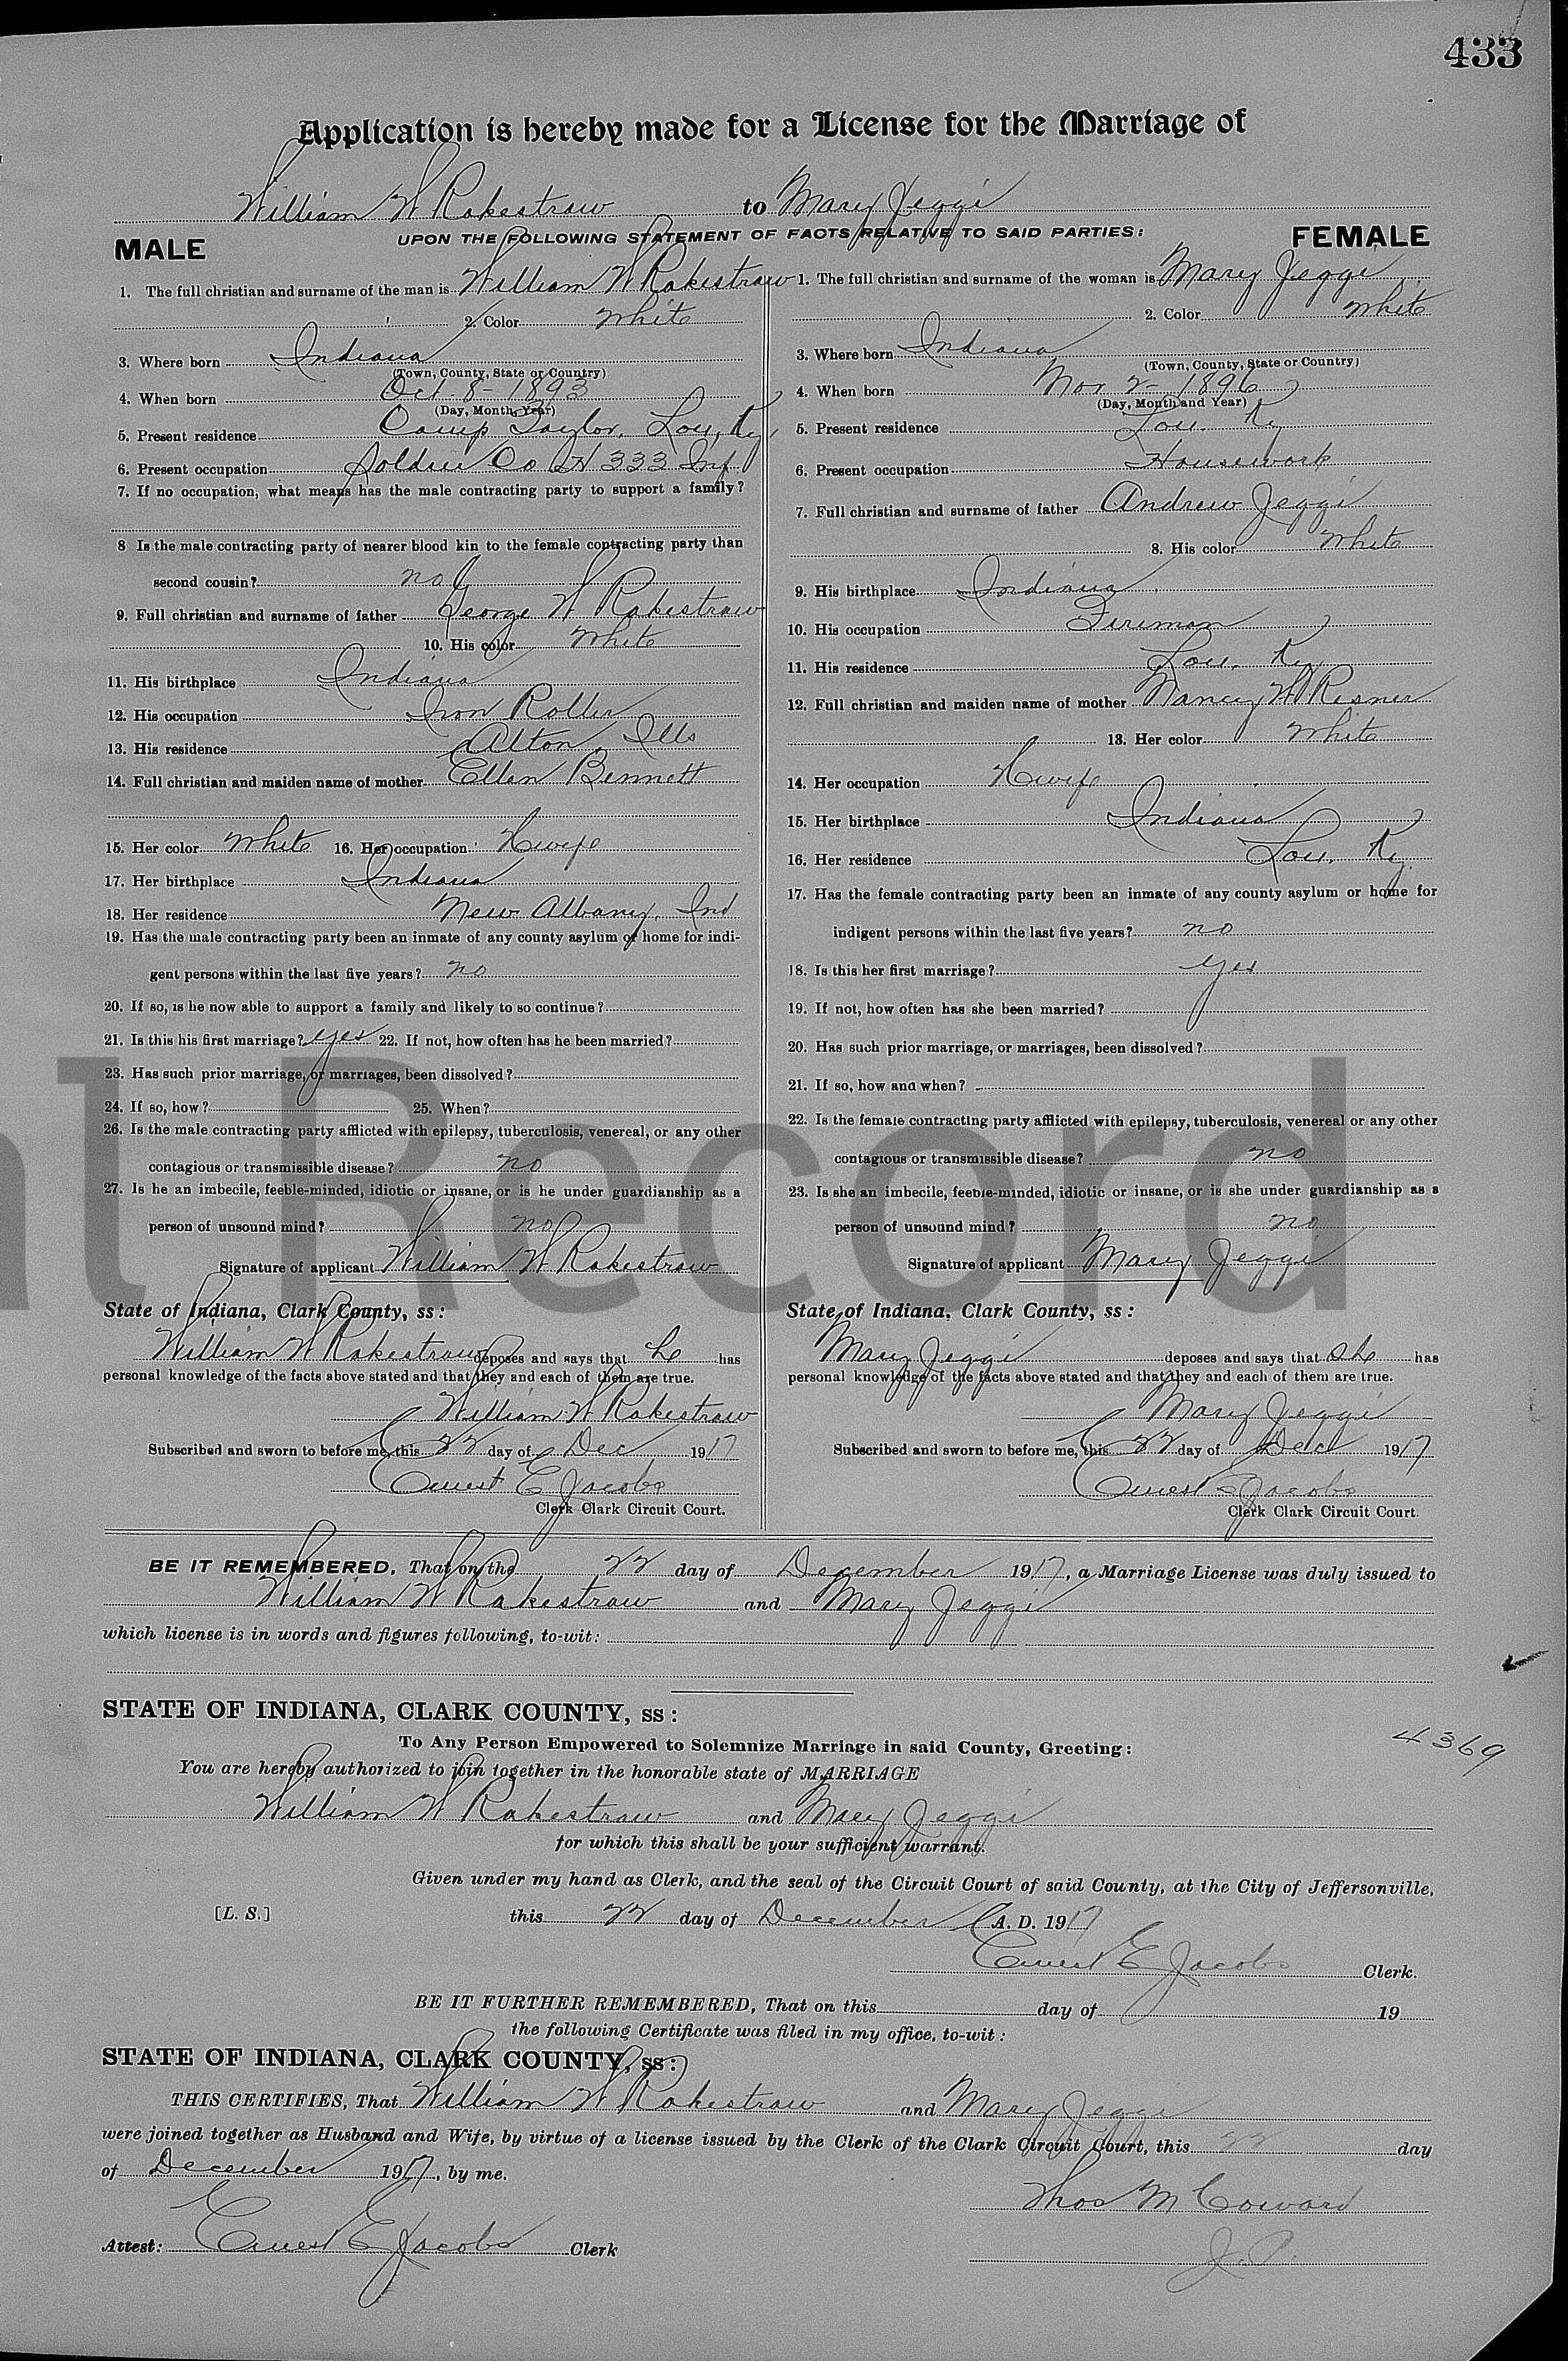 433
Application is hereby made for a License for the Marriage of
William W Rakestraw to Mary Jeggi
UPON THE FOLLOWING STATEMENT OF FACTS RELATIVE TO SAID PARTIES:
MALE
1. The full christian and surname of the man is William W Rakestraw
2. Color White
3. Where born Indiana
(Town, County, State or Country)
4. When born Oct. 8- 1893
(Day, Month, Year)
5. Present residence Camp Taylor, Lou, Ky,
6. Present occupation Soldier Co H 333 Inf
7. If no occupation, what means has the male contracting party to support a family?
8 Is the male contracting party of nearer blood kin to the female contracting party than
second cousin? no
9. Full christian and surname of father George W Rakestraw
10. His color White
11. His birthplace Indiana
12. His occupation Iron Roller
13. His residence Alton, Ills
14. Full christian and maiden name of mother Ellen Bennett
15. Her color White 16. Her occupation Hwife
17. Her birthplace Indiana
18. Her residence New Albany, Ind
19. Has the male contracting party been an inmate of any county asylum or home for indi-
gent persons within the last five years? no
20. If so, is he now able to support a family and likely to so continue?
21. Is this his first marriage? yes 22. If not, how often has he been married?
23. Has such prior marriage, or marriages, been dissolved?
24. If so, how? 25. When?
26. Is the male contracting party afflicted with epilepsy, tuberculosis, venereal, or any other
contagious or transmissible disease? no
27. Is he an imbecile, feeble-minded, idiotic or insane, or is he under guardianship as a
person of unsound mind? no
Signature of applicant William W Rakestraw
State of Indiana, Clark County, ss:
William W Rakestraw deposes and says that he has
personal knowledge of the facts above stated and that they and each of them are true.
William W Rakestraw
Subscribed and sworn to before me, this 22 day of Dec 1917
Ernest E Jacobs
Clerk Clark Circuit Court.
FEMALE
1. The full christian and surname of the woman is Mary Jeggi
2. Color White
3. Where born Indiana
(Town, County, State or Country)
4. When born Nov 2- 1896
(Day, Month and Year)
5. Present residence Lou. Ky
6. Present occupation Housework
7. Full christian and surname of father Andrew Jeggi
8. His color White
9. His birthplace Indiana
10. His occupation Fireman
11. His residence Lou. Ky
12. Full christian and maiden name of mother Nancy W Risner
13. Her color White
14. Her occupation Hwife
15. Her birthplace Indiana
16. Her residence Lou. Ky
17. Has the female contracting party been an inmate of any county asylum or home for
indigent persons within the last five years? no
18. Is this her first marriage? yes
19. If not, how often has she been married?
20. Has such prior marriage, or marriages, been dissolved?
21. If so, how and when?
22. Is the female contracting party afflicted with epilepsy, tuberculosis, venereal or any other
contagious or transmissible disease? no
23. Is she an imbecile, feeble-minded, idiotic or insane, or is she under guardianship as a
person of unsound mind? no
Signature of applicant Mary Jeggi
State of Indiana, Clark County, ss:
Mary Jeggi deposes and says that she has
personal knowledge of the facts above stated and that they and each of them are true.
Mary Jeggi
Subscribed and sworn to before me, this 22 day of Dec 1917
Ernest E Jacobs
Clerk Clark Circuit Court.
BE IT REMEMBERED, That on the 22 day of December 1917, a Marriage License was duly issued to
William W Rakestraw and Mary Jeggi
which license is in words and figures following, to-wit:
STATE OF INDIANA, CLARK COUNTY, ss:
4369
To Any Person Empowered to Solemnize Marriage in said County, Greeting:
You are hereby authorized to join together in the honorable state of MARRIAGE
William W Rakestraw and Mary Jeggi
for which this shall be your sufficient warrant.
Given under my hand as Clerk, and the seal of the Circuit Court of said County, at the City of Jeffersonville,
[L. S.] this 22 day of December A. D. 1917
Ernest E Jacobs Clerk.
BE IT FURTHER REMEMBERED, That on this day of 19
the following Certificate was filed in my office, to-wit:
STATE OF INDIANA, CLARK COUNTY, ss:
THIS CERTIFIES, That William W Rakestraw and Mary Jeggi
were joined together as Husband and Wife, by virtue of a license issued by the Clerk of the Clark Circuit Court, this 22 day
of December 1917, by me.
Thos M Coward
Attest: Ernest E Jacobs Clerk
J. P.
l Record